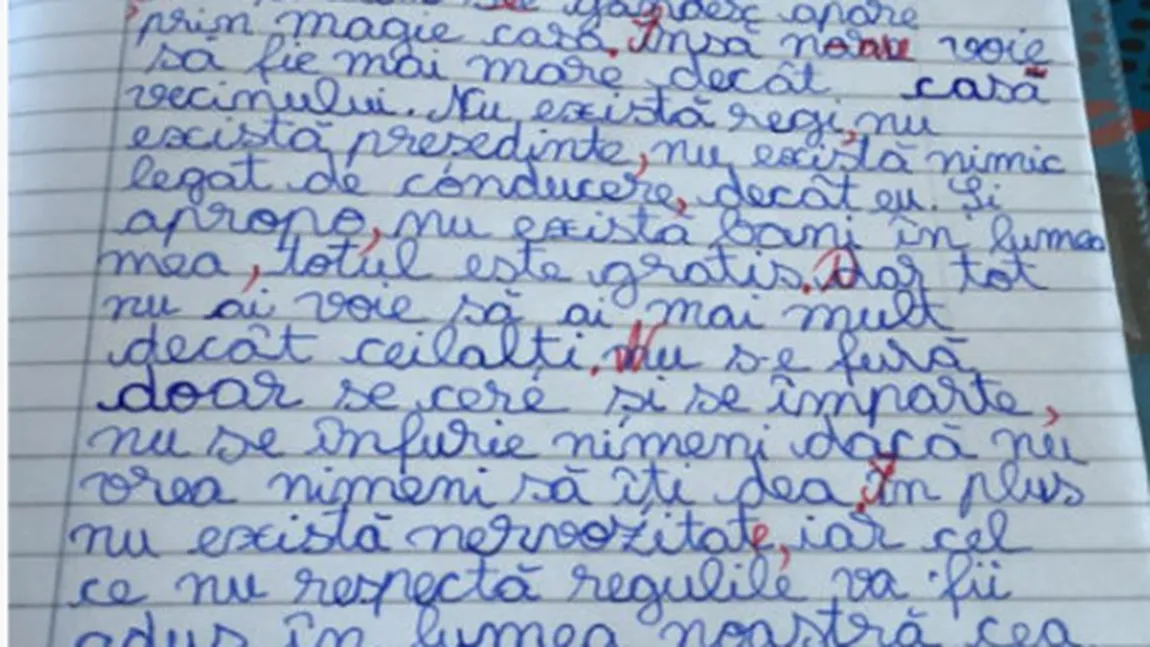 se gândesc apare
prin magie casa. Însă n-au voie
să fie mai mare decât casă
vecinului. Nu există regi, nu
există presedinte, nu există nimic
legat de conducere, decât eu. Și
apropo, nu există bani în lumea
mea, totul este gratis. Dar tot
nu ai voie să ai mai mult
decât ceilalți. Nu se fură
doar se cere și se împarte,
nu se înfurie nimeni dacă nu
vrea nimeni să îți dea. În plus
nu există nervozitate, iar cel
ce nu respectă regulile va fii
adus în lumea noastră cea